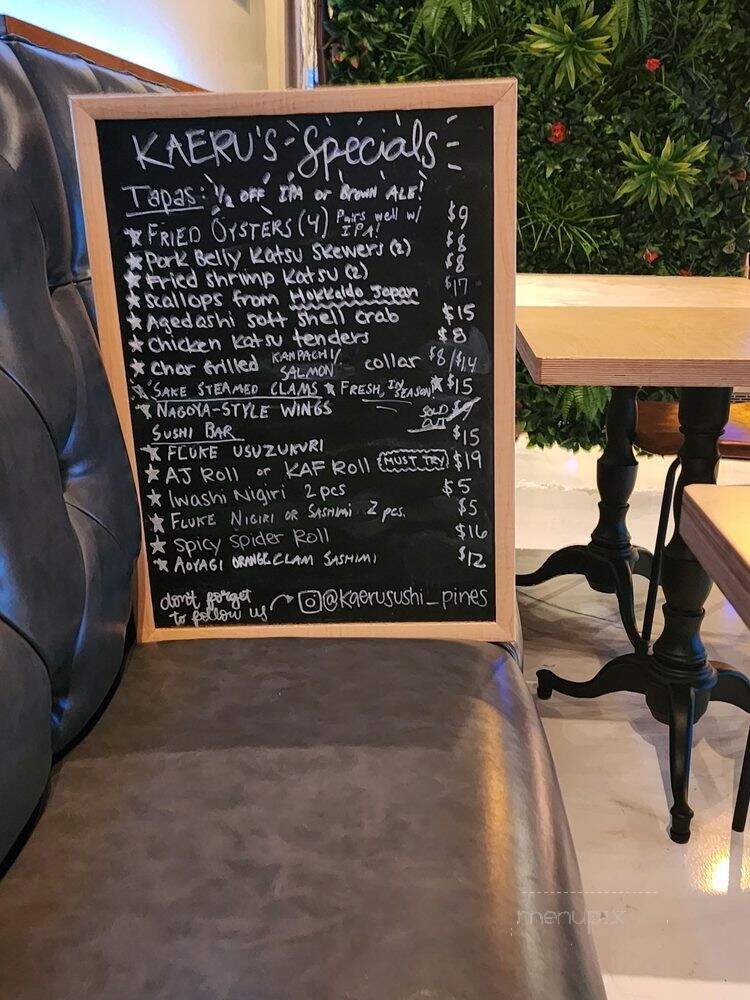 KAERU'S Specials
Tapas: 1/2 OFF IPA or Brown ALE!
★ FRIED OYSTERS (4) Pairs well w/ IPA! $9
★ Pork Belly Katsu Skewers (2) $8
★ Fried Shrimp Katsu (2) $8
★ Scallops from Hokkaido Japan $17
★ Agedashi Soft Shell Crab $15
★ Chicken Katsu tenders $8
★ Char Grilled KANPACHI/ SALMON collar $8/$14
★ SAKE STEAMED CLAMS ★ FRESH, IN SEASON! ★ $15
★ NAGOYA-STYLE WINGS SOLD OUT
SUSHI BAR
★ FLUKE USUZUKURI $15
★ AJ Roll or KAF Roll MUST TRY $19
★ Iwashi Nigiri 2 pcs $5
★ FLUKE NIGIRI OR SASHIMI 2 pcs. $5
★ Spicy Spider Roll $16
★ AOYAGI ORANGE CLAM SASHIMI $12
don't forget to follow us @kaerusushi_pines
menupix